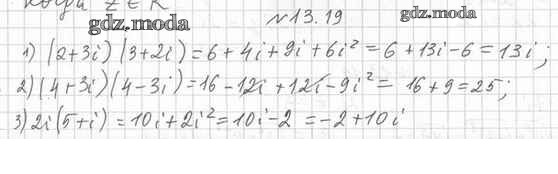 когда z ∈ R
gdz.moda
№13.19
gdz.moda
1) (2+3i)(3+2i)=6+4i+9i+6i²=6+13i-6=13i;
2)(4+3i)(4-3i)=16-12i+12i-9i²=16+9=25;
3)2i(5+i)=10i+2i²=10i-2=-2+10i